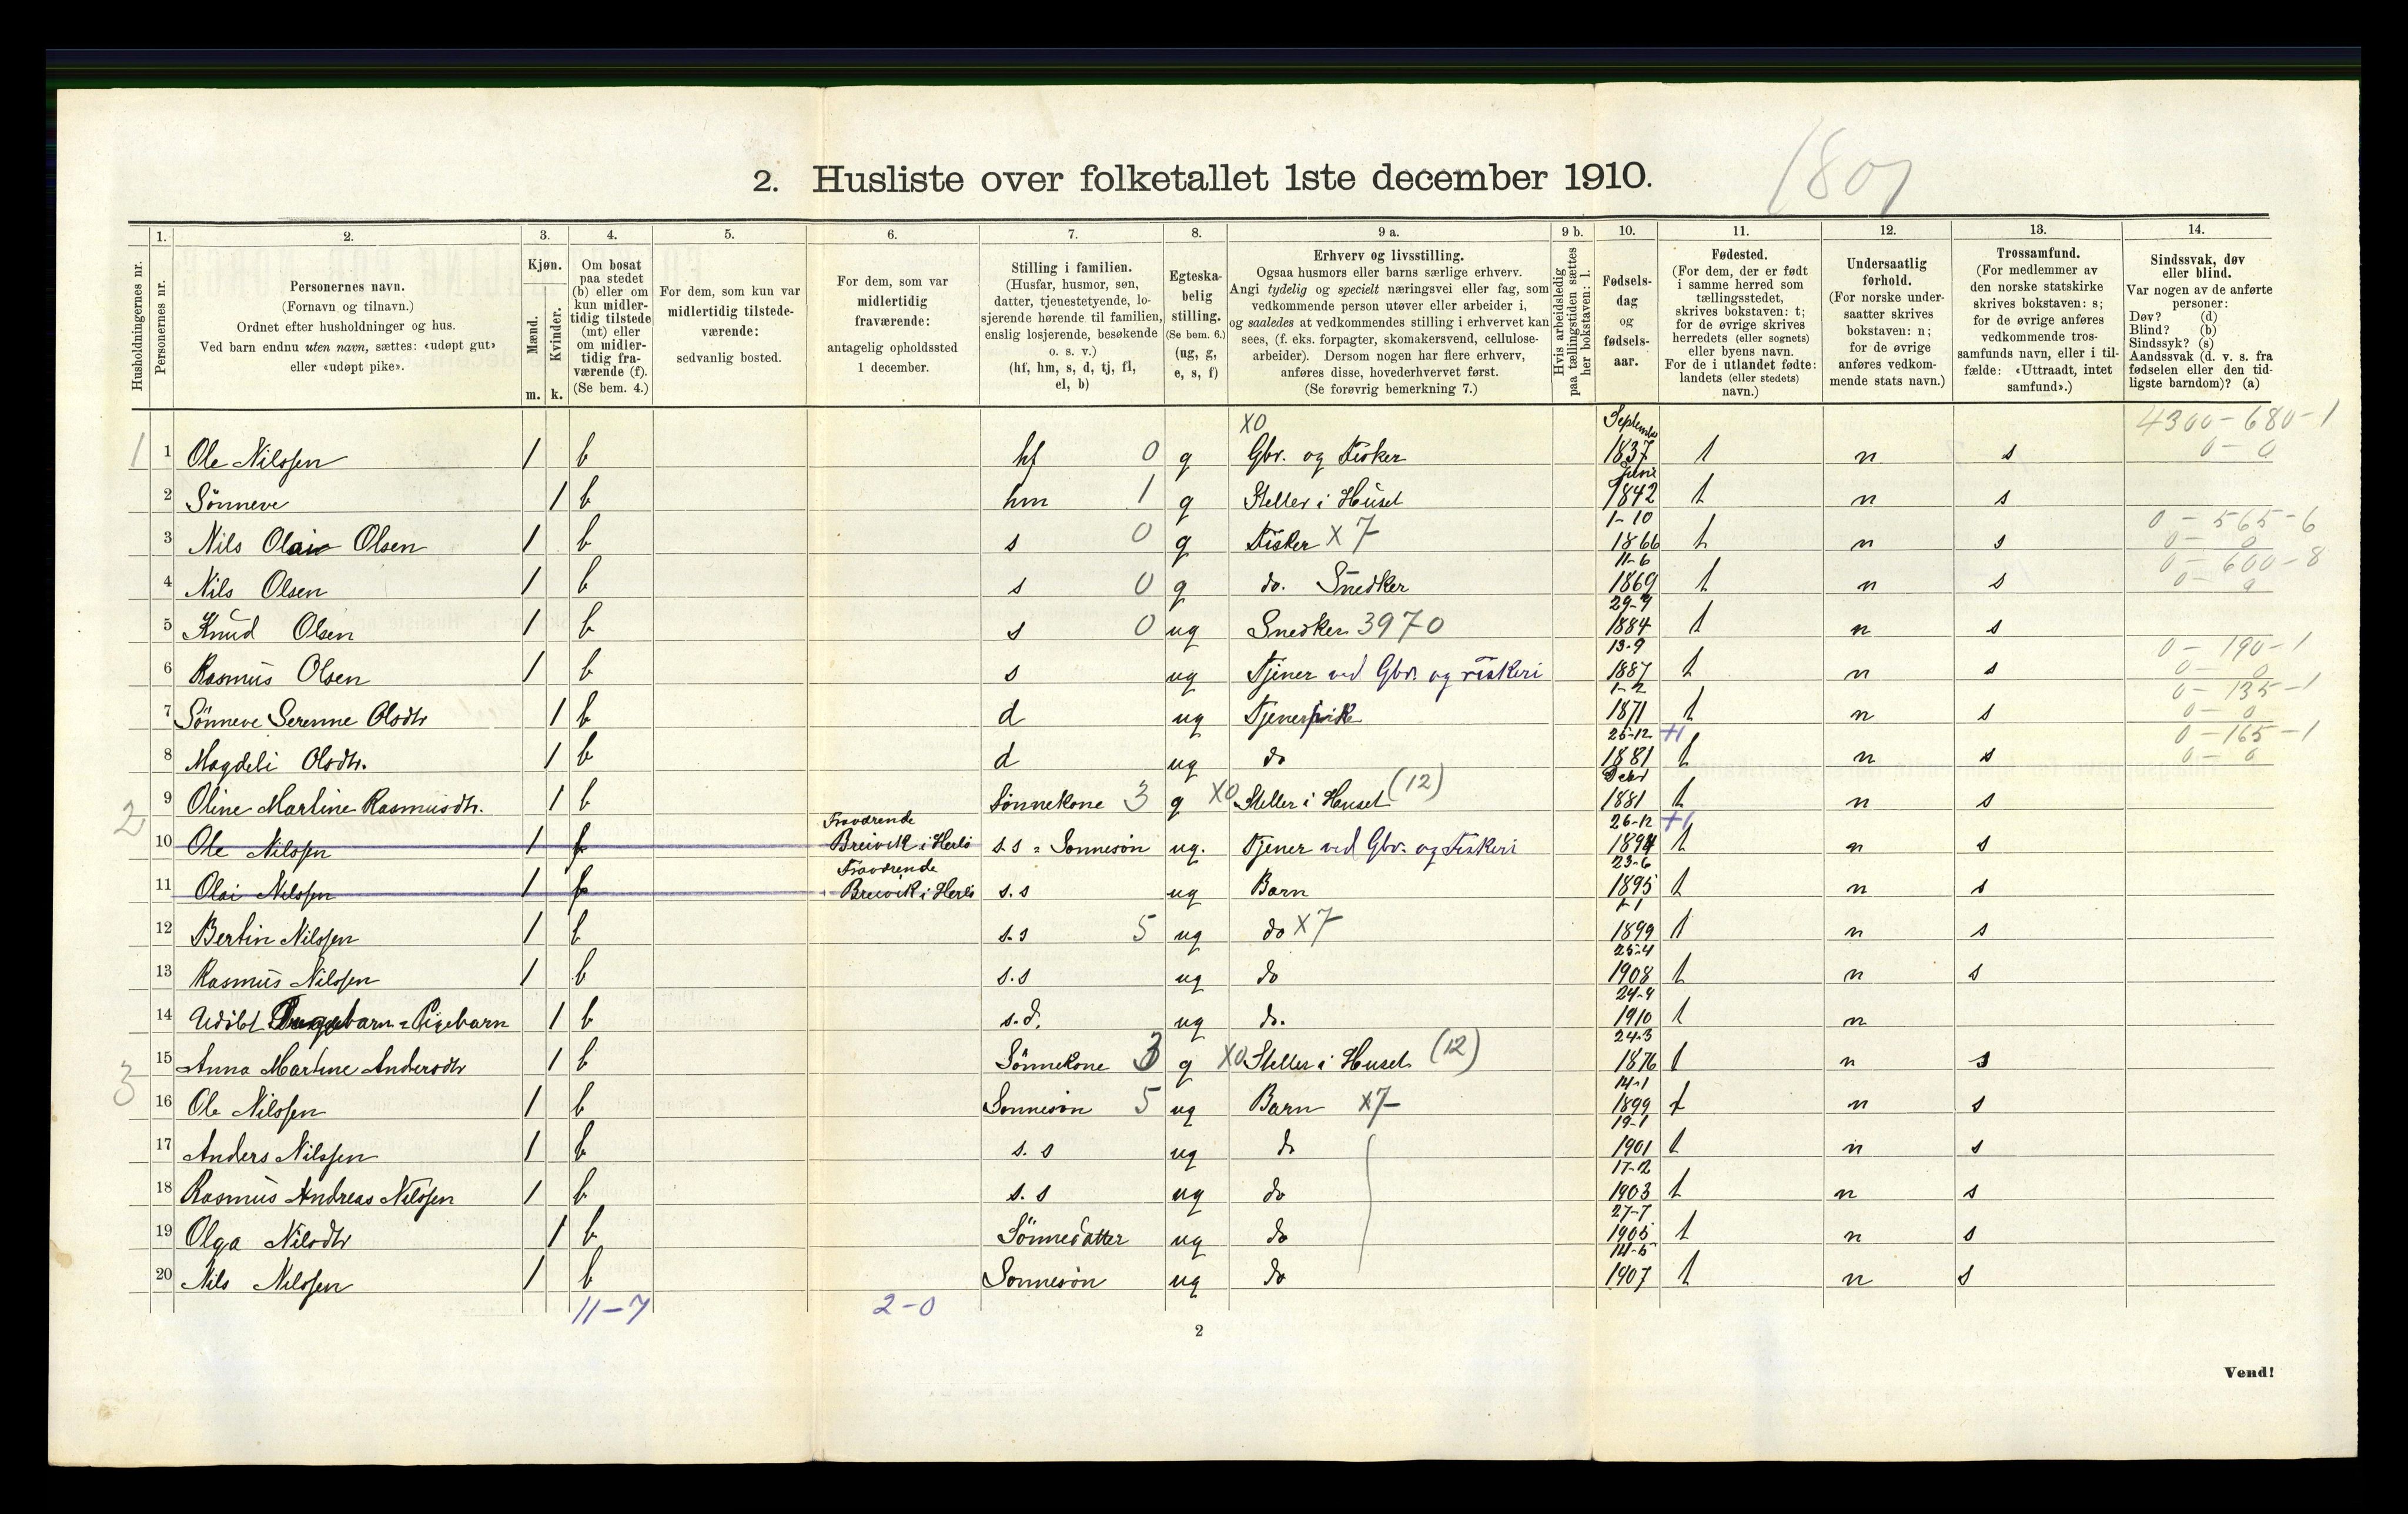 1807
2. Husliste over folketallet 1ste december 1910.
1. 2. 3. 4. 5. 6. 7. 8. 9 a. 9 b. 10. 11. 12. 13. 14.
Husholdningernes nr.
Personernes nr.
Personernes navn.
(Fornavn og tilnavn.)
Ordnet efter husholdninger og hus.
Ved barn endnu uten navn, sættes: «udøpt gut»
eller «udøpt pike».
Kjøn.
Mænd.
Kvinder.
m. k.
Om bosat
paa stedet
(b) eller om
kun midler-
tidig tilstede
(mt) eller
om midler-
tidig fra-
værende (f).
(Se bem. 4.)
For dem, som kun var
midlertidig tilstede-
værende:
sedvanlig bosted.
For dem, som var
midlertidig
fraværende:
antagelig opholdssted
1 december.
Stilling i familien.
(Husfar, husmor, søn,
datter, tjenestetyende, lo-
sjerende hørende til familien,
enslig losjerende, besøkende
o. s. v.)
(hf, hm, s, d, tj, fl,
el, b)
Egteska-
belig
stilling.
(Se bem. 6.)
(ug, g,
e, s, f)
Erhverv og livsstilling.
Ogsaa husmors eller barns særlige erhverv.
Angi tydelig og specielt næringsvei eller fag, som
vedkommende person utøver eller arbeider i,
og saaledes at vedkommendes stilling i erhvervet kan
sees, (f. eks. forpagter, skomakersvend, cellulose-
arbeider). Dersom nogen har flere erhverv,
anføres disse, hovederhvervet først.
(Se forøvrig bemerkning 7.)
Hvis arbeidsledig
paa tællingstiden sættes
her bokstaven: l.
Fødsels-
dag
og
fødsels-
aar.
Fødested.
(For dem, der er født
i samme herred som
tællingsstedet,
skrives bokstaven: t;
for de øvrige skrives
herredets (eller sognets)
eller byens navn.
For de i utlandet fødte:
landets (eller stedets)
navn.)
Undersaatlig
forhold.
(For norske under-
saatter skrives
bokstaven: n;
for de øvrige
anføres vedkom-
mende stats navn.)
Trossamfund.
(For medlemmer av
den norske statskirke
skrives bokstaven: s;
for de øvrige anføres
vedkommende tros-
samfunds navn, eller i til-
fælde: «Uttraadt, intet
samfund».)
Sindssvak, døv
eller blind.
Var nogen av de anførte
personer:
Døv? (d)
Blind? (b)
Sindssyk? (s)
Aandssvak (d. v. s. fra
fødselen eller den tid-
ligste barndom)? (a)
X0 September 4300-680-1
1 1 Ole Nilssen 1 b hf 0 g Gbr. og Fisker 1837 t n s 0-0
2 Sönneve 1 b hm 1 g Steller i Huset 1842 t n s
1-10 0-565-6
3 Nils Olai Olsen 1 b s 0 g Fisker X7 1866 t n s 0-0
11-6 0-600-8
4 Nils Olsen 1 b s 0 g do. Snedker 1869 t n s 0-0
29-9
5 Knud Olsen 1 b s 0 ug Snedker 3970 1884 t n s
13-9 0-190-1
6 Rasmus Olsen 1 b s ug Tjener ved Gbr. og Fiskeri 1887 t n s 0-0
1-2 0-135-1
7 Sönneve Serenne Olsdtr 1 b d ug Tjenerpike 1871 t n s 0-0
25-12 +1 0-165-1
8 Magdeli Olsdtr. 1 b d ug do 1881 t n s 0-0
2 9 Oline Martine Rasmusdtr. 1 b Sönnekone 3 g X0 Steller i Huset (12) 1881 t n s
Fraværende 26-12 +1
10 Ole Nilssen 1 f Breivik i Herlö s.s = Sonnesön ug. Tjener ved Gbr. og Fiskeri 1894 t n s
Fraværende 23-6
11 Olai Nilssen 1 f Breivik i Herlö s.s ug Barn 1895 t n s
1-1
12 Bertin Nilssen 1 b s.s 5 ug do X7 1899 t n s
25-4
13 Rasmus Nilssen 1 b s.s ug do 1908 t n s
24-9
14 Udöbt barn = Pigebarn 1 b s.d. ug do. 1910 t n
24-3
3 15 Anna Martine Andersdtr 1 b Sönnekone 3 g X0 Steller i Huset (12) 1876 t n s
14-1
16 Ole Nilssen 1 b Sonnesön 5 ug Barn X7 1899 t n s
19-1
17 Anders Nilssen 1 b s. s ug do 1901 t n s
17-2
18 Rasmus Andreas Nilssen 1 b s. s ug do 1903 t n s
27-7
19 Olga Nilsdtr 1 b Sönnedatter ug do 1905 t n s
14-5
20 Nils Nilssen 1 b Sonnesön ug do 1907 t n s
11-7 2-0
2
Vend!